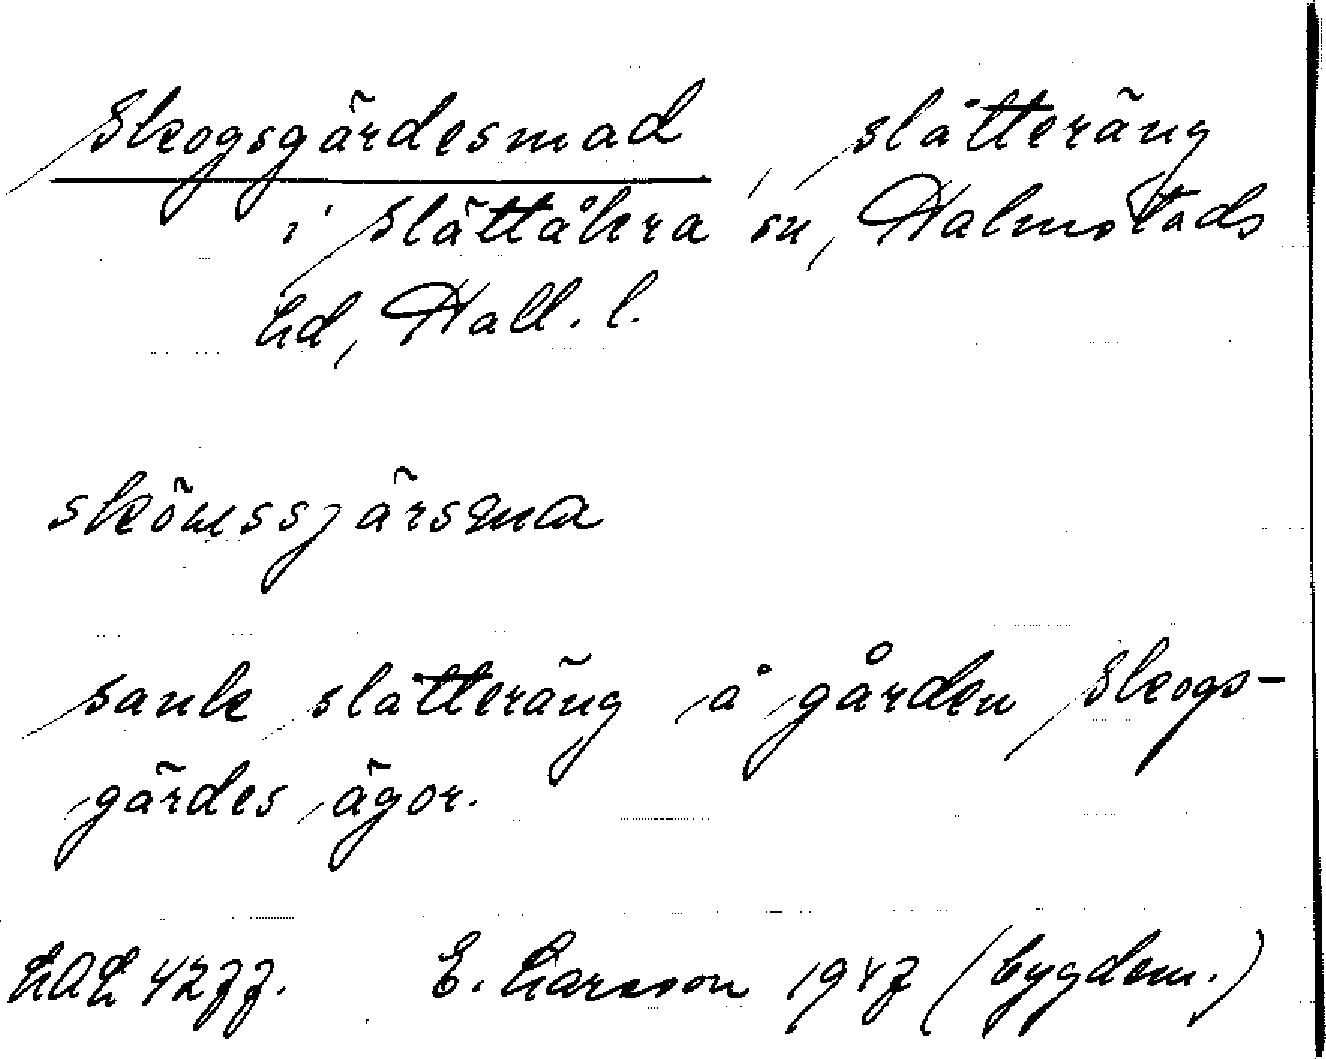 Skogsgärdesmad, slåtteräng
i Slättåkra sn, Halmstads
hd, Hall. l.
skömssjärsma
sank slåtteräng å gården Skogs-
gärdes ägor.
LAL 4277. E. Larsson 1947 (bygdem.)